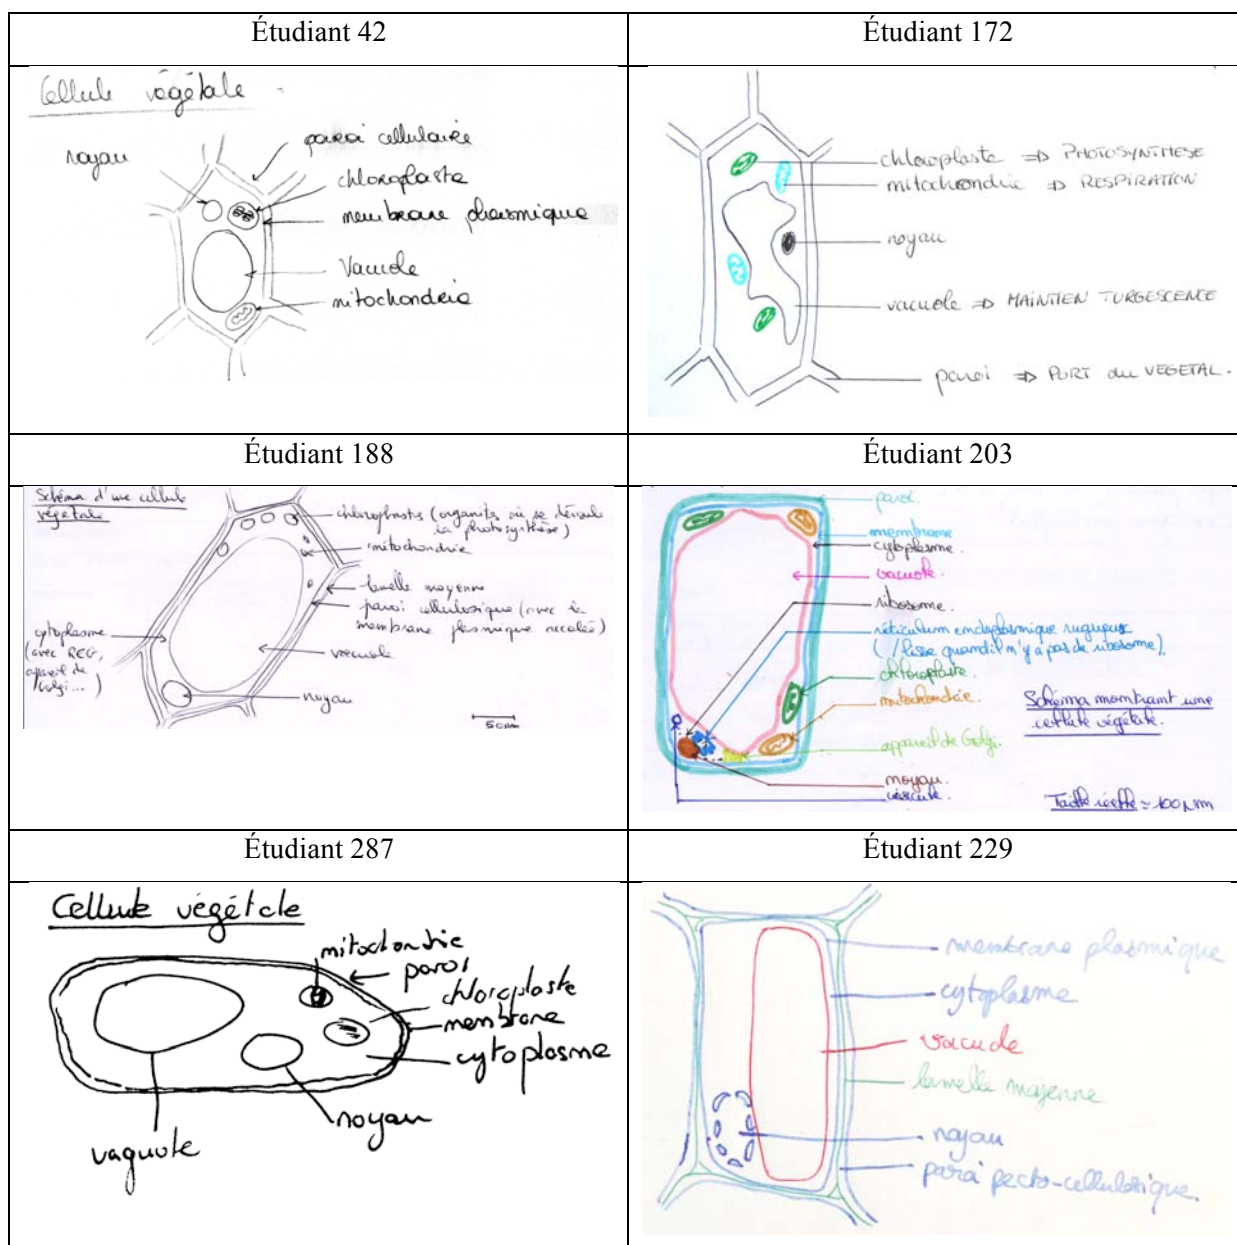 Étudiant 42
Étudiant 172
Cellule végétale
noyau
paroi cellulaire
chloroplaste
membrane plasmique
Vacuole
mitochondrie
chloroplaste => PHOTOSYNTHESE
mitochondrie => RESPIRATION
noyau
vacuole => MAINTIEN TURGESCENCE
paroi => PORT du VEGETAL.
Étudiant 188
Étudiant 203
Schéma d'une cellule
végétale
chloroplastes (organites où se déroule
la photosynthèse)
mitochondrie
lamelle moyenne
paroi cellulosique (avec la
membrane plasmique accolée)
cytoplasme
(avec REG,
appareil de
Golgi...)
vacuole
noyau
50 µm
paroi
membrane
cytoplasme.
vacuole.
ribosome.
réticulum endoplasmique rugueux
(/lisse quand il n'y a pas de ribosome).
chloroplaste.
mitochondrie.
appareil de Golgi.
noyau.
vésicule.
Schéma montrant une
cellule végétale.
Taille réelle ≃ 100 µm
Étudiant 287
Étudiant 229
Cellule végétale
mitochondrie
paroi
chloroplaste
membrane
cytoplasme
noyau
vaquole
membrane plasmique
cytoplasme
vacuole
lamelle moyenne
noyau
paroi pecto-cellulosique.